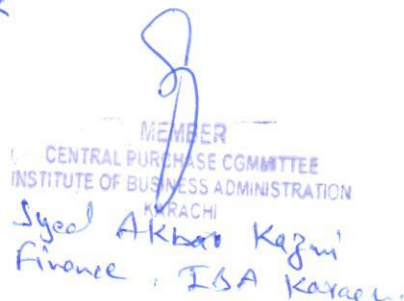 MEMBER
CENTRAL PURCHASE COMMITTEE
INSTITUTE OF BUSINESS ADMINISTRATION
KARACHI
Syed Akbar Kazmi
Finance, IBA Karachi.